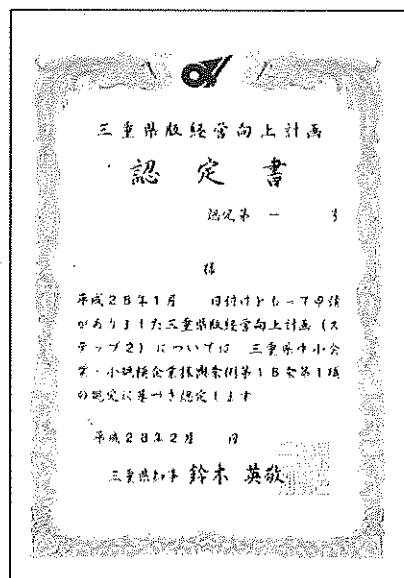 三重県版経営向上計画
認定書
認定第 一 号
様
平成28年1月 日付けをもって申請
がありました三重県版経営向上計画(ス
テップ2)については 三重県中小企
業・小規模企業振興条例第18条第1項
の規定に基づき認定します
平成28年2月 日
三重県知事 鈴木 英敬